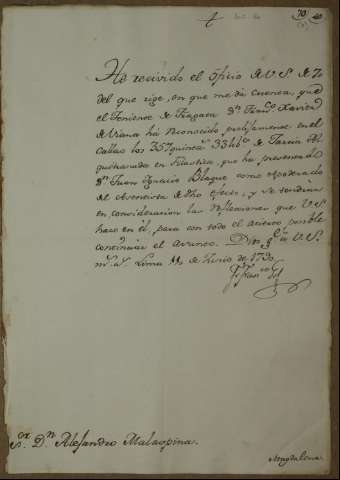 70
He recivido el oficio de V.S. de 7.
del que rige, en que me da cuenta, que
el Teniente de Fragata Dn. Franco. Xavier
de Viana ha reconocido, prolijamente en el
Callao los 357 quints. 33 libs. de Jarcia Al-
quitranada en Filastica, que ha presentado
Dn. Juan Ignacio Blaque como Apoderado
del Asentista de dho efecto, y se tendran
en consideracion las reflexiones que V.S.
hace en él, para con todo el acierto posible
continuar el asunto. Dios gue. a V.S.
ms. as. Lima 11 de Junio de 1790
Sor. Dn. Alexandro Malaspina.
Magdalena.